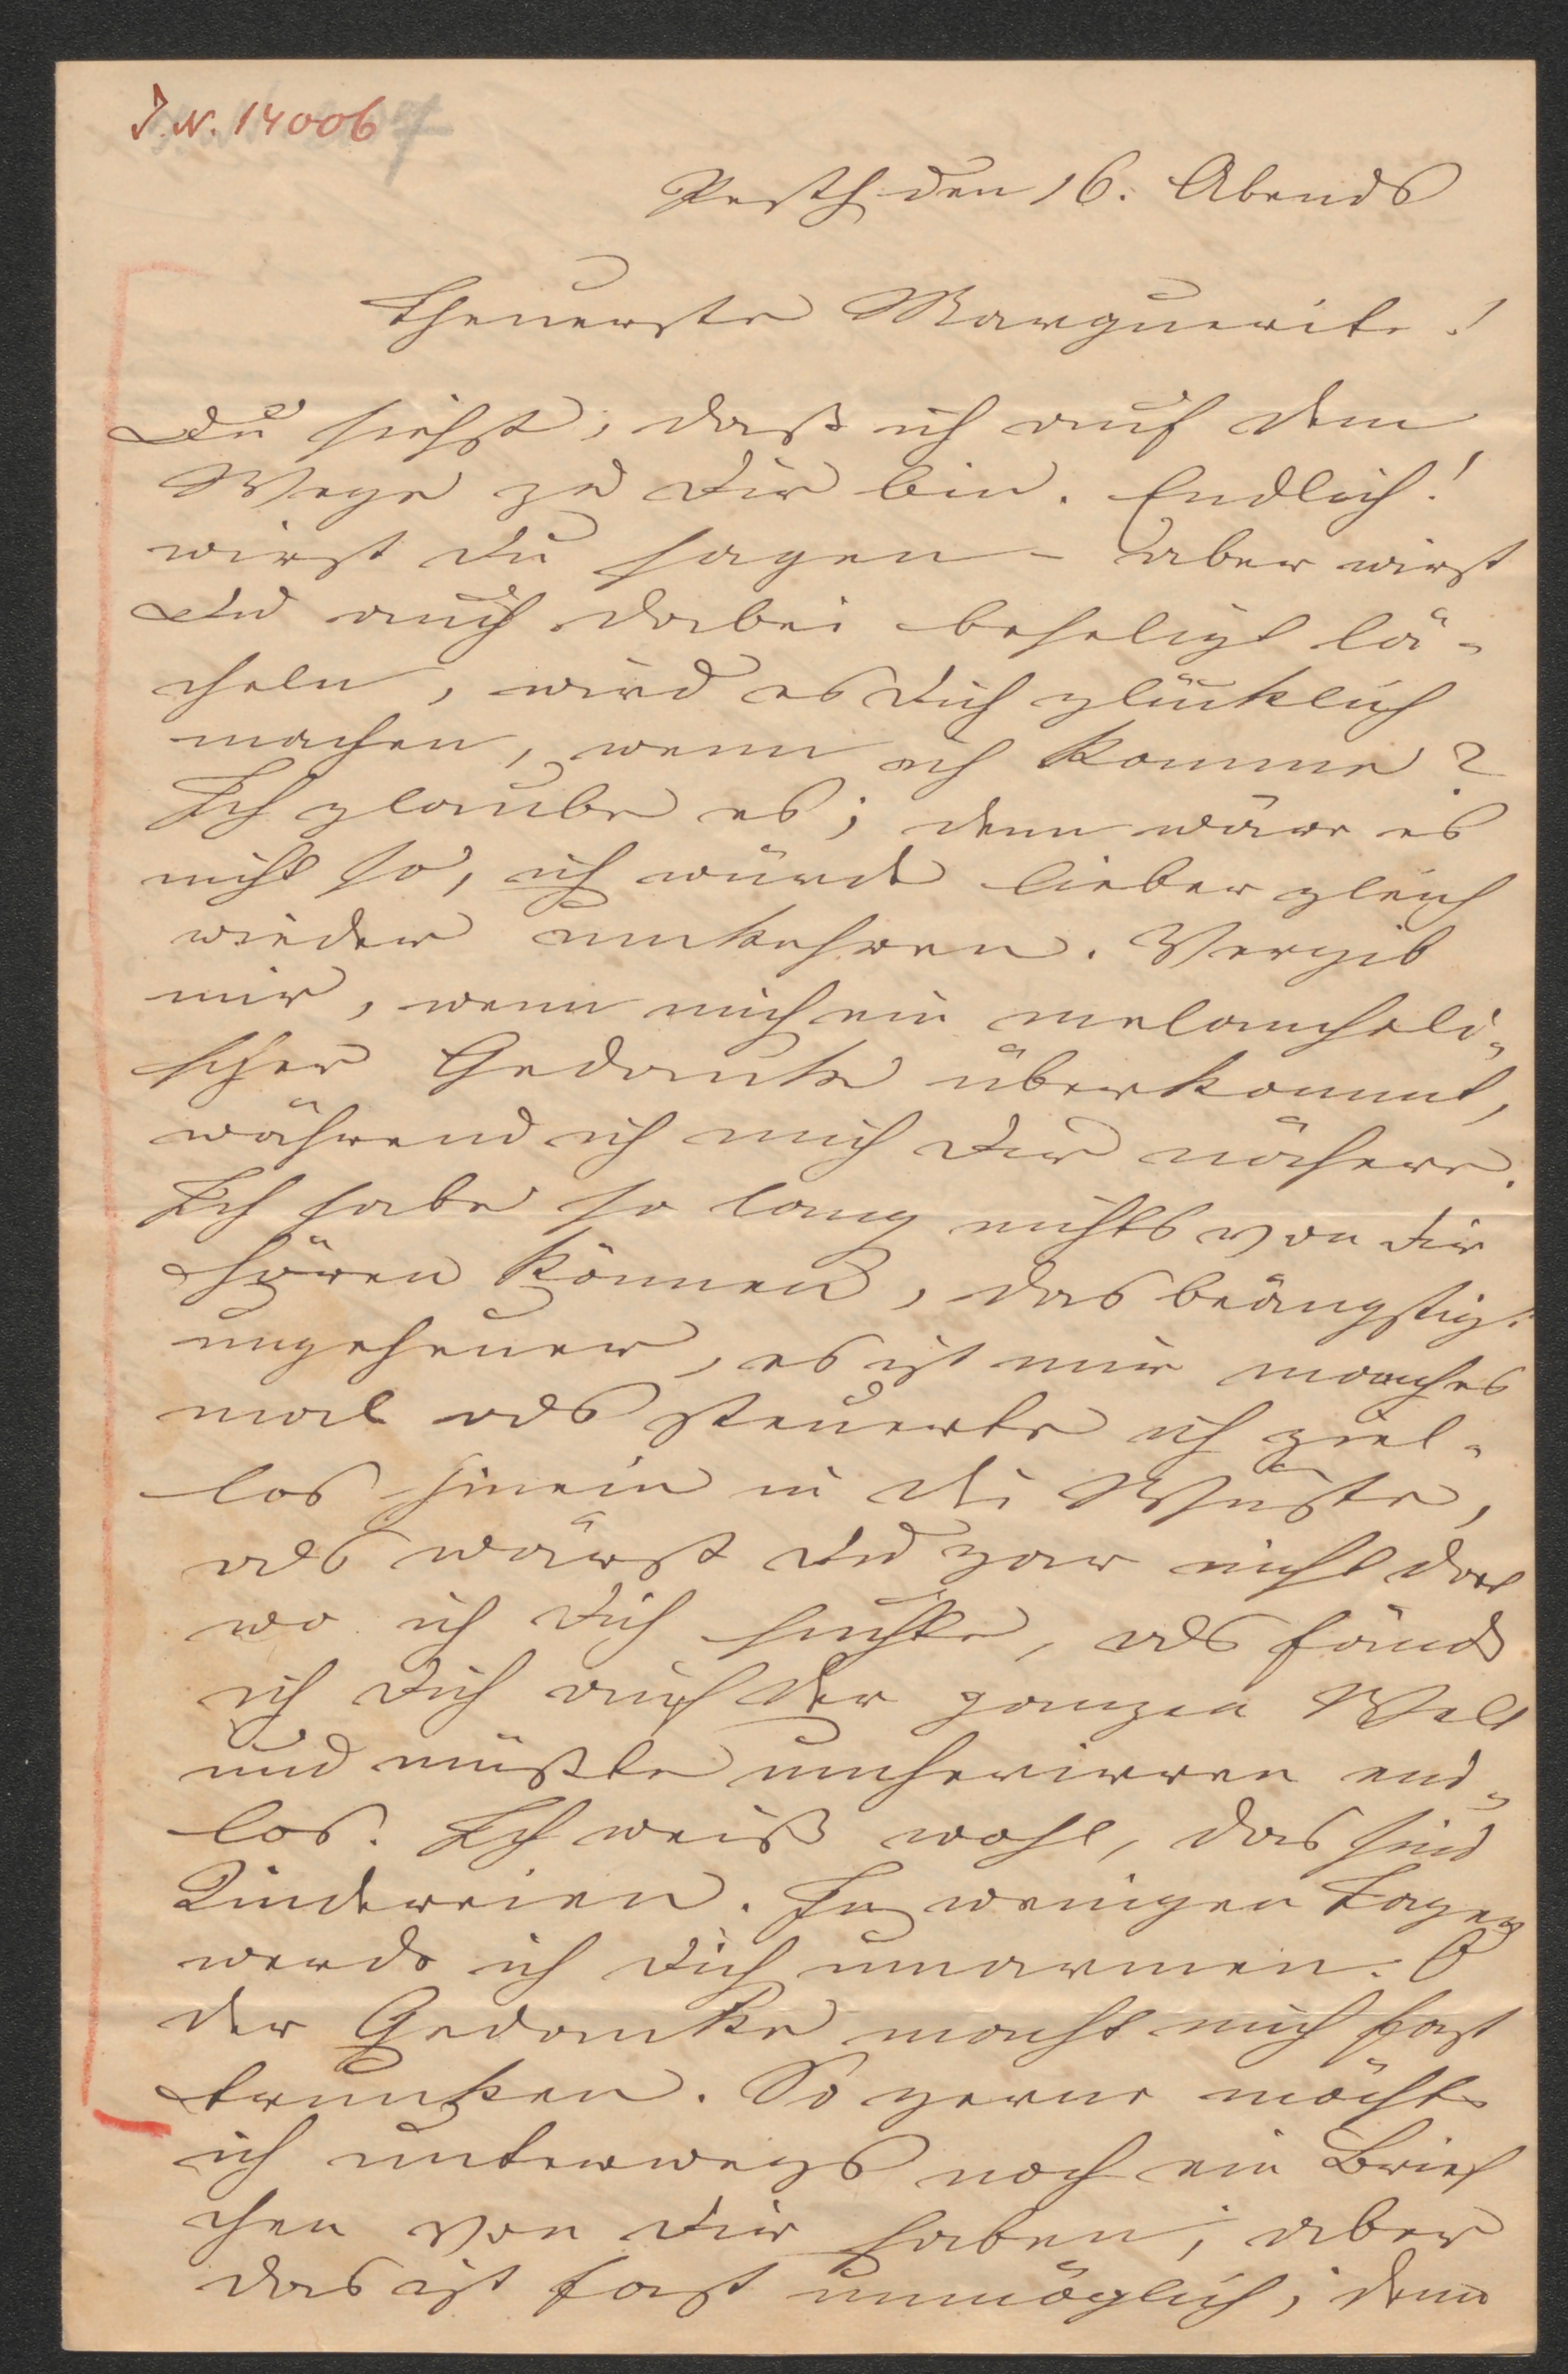 J. N. 14006
Pesth den 16. Abends
Theuerste Marguerite!
Du siehst, daß ich auf dem
Wege zu Dir bin. Endlich!
wirst Du sagen – aber wirst
Du auch dabei beseligt lä-
cheln, wird es Dich glücklich
machen, wenn ich komme?
Ich glaube es; denn wäre es
nicht so, ich würde lieber gleich
wieder umkehren. Vergib
mir, wenn mich ein melancholi-
scher Gedanke überkommt,
während ich mich Dir nähere.
Ich habe so lang nichts von Dir
hören können, das beängstigt
ungeheuer, es ist mir manches
mal als steuerte ich ziel-
los hinein in die Wüste,
als wärst Du gar nicht dort
wo ich Dich suchte, als fänd
ich Dich auf der ganzen Welt
und müßte umherirren end-
los. Ich weiß wohl, das sind
Kindereien. In wenigen Tagen
werde ich Dich umarmen. O
der Gedanke macht mich fast
trunken. So gerne möchte
ich unterwegs noch ein Brief
chen von Dir haben; aber
das ist fast unmöglich; denn